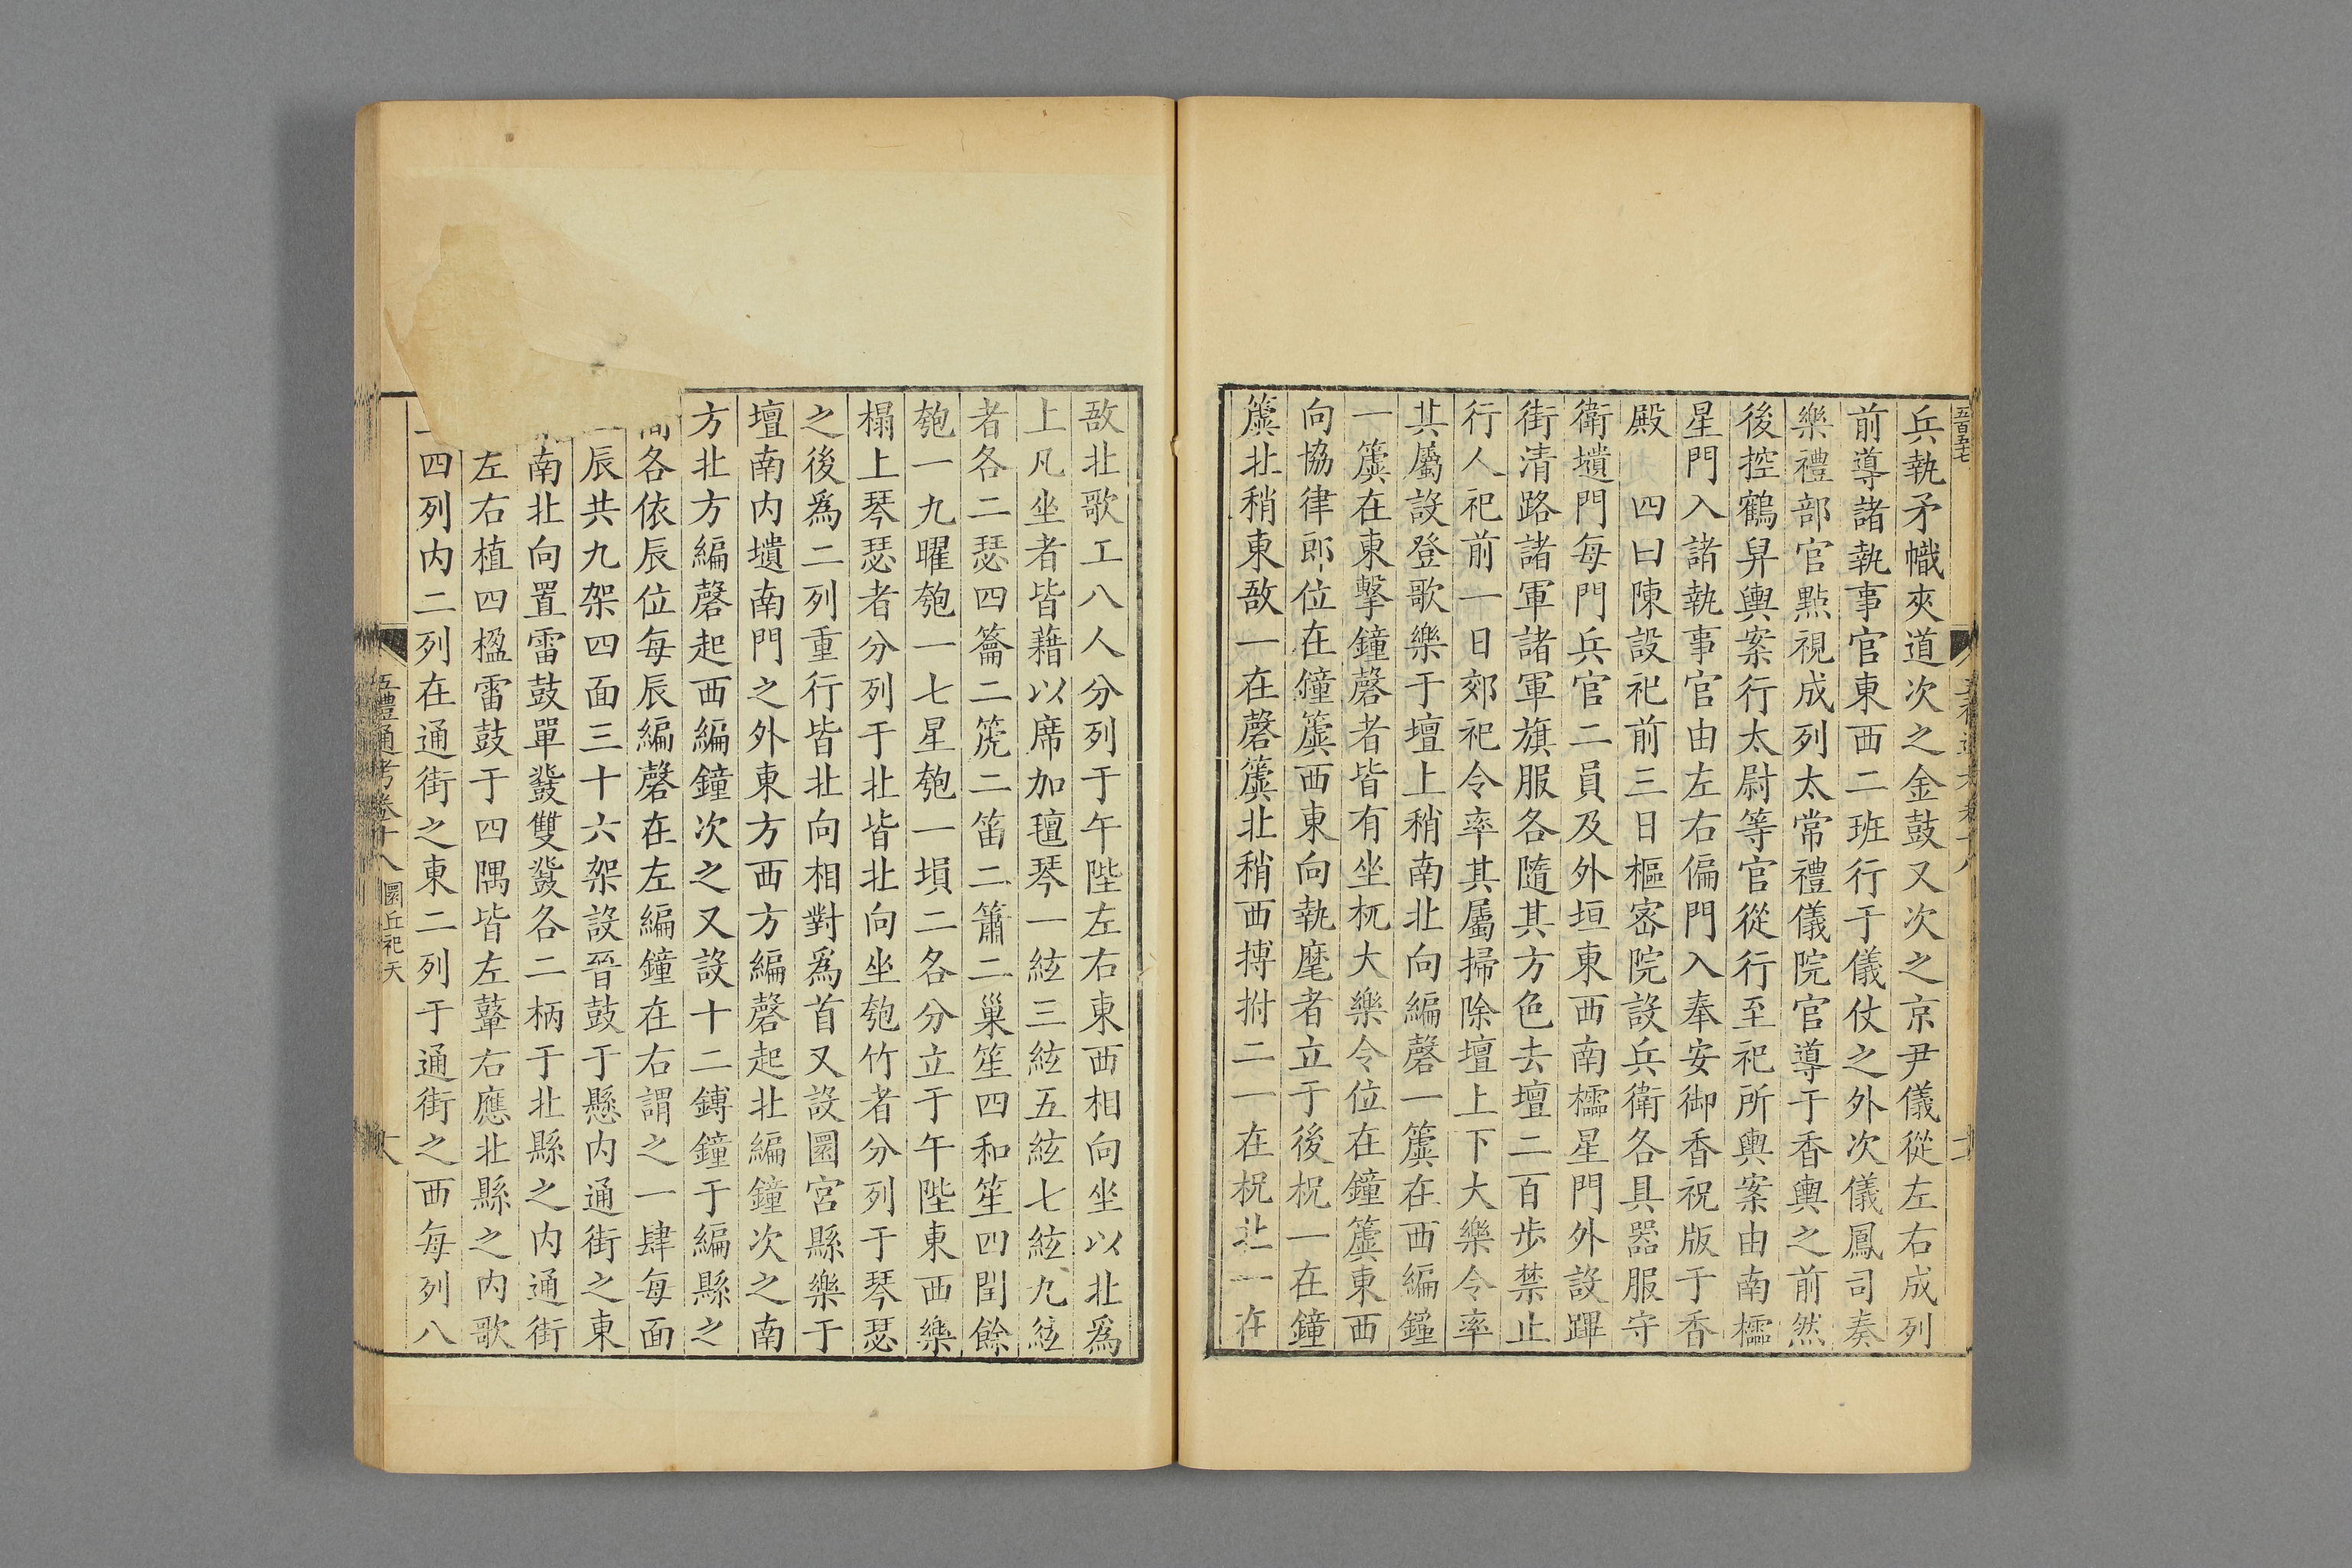 兵執矛幟夾道次之金鼓又次之京尹儀從左右成列
前導諸執事官東西二班行于儀仗之外次儀鳳司奏
樂禮部官點視成列太常禮儀院官導于香輿之前然
後控鶴舁輿案行太尉等官從行至祀所輿案由南櫺
星門入諸執事官由左右偏門入奉安御香祝版于香
殿　四曰陳設祀前三日樞宻院設兵衛各具器服守
衛壝門每門兵官二員及外垣東西南櫺星門外設蹕
街清路諸軍諸軍旗服各隨其方色去壇二百步禁止
行人祀前一日郊祀令率其屬掃除壇上下大樂令率
其屬設登歌樂于壇上稍南北向編磬一簴在西編鐘
一簴在東擊鐘磬者皆有坐杌大樂令位在鐘簴東西
向協律郎位在鐘簴西東向執麾者立于後柷一在鐘
簴北稍東敔一在磬簴北稍西搏拊二一在柷北一在
敔北歌工八人分列于午陛左右東西相向坐以北爲
上凡坐者皆藉以席加氊琴一絃三絃五絃七絃九絃
者各二瑟四籥二箎二笛二簫二巢笙四和笙四閏餘
匏一九曜匏一七星匏一塤二各分立于午陛東西樂
榻上琴瑟者分列于北皆北向坐匏竹者分列于琴瑟
之後爲二列重行皆北向相對爲首又設圜宮縣樂于
壇南内壝南門之外東方西方編磬起北編鐘次之南
方北方編磬起西編鐘次之又設十二鎛鐘于編縣之
間各依辰位每辰編磬在左編鐘在右謂之一肆每面
辰共九架四面三十六架設晉鼓于懸内通街之東
南北向置雷鼓單鼗雙鼗各二柄于北縣之内通街
左右植四楹雷鼓于四隅皆左鼙右應北縣之内歌
四列内二列在通街之東二列于通街之西每列八
五禮通考卷十八　圜丘祀天